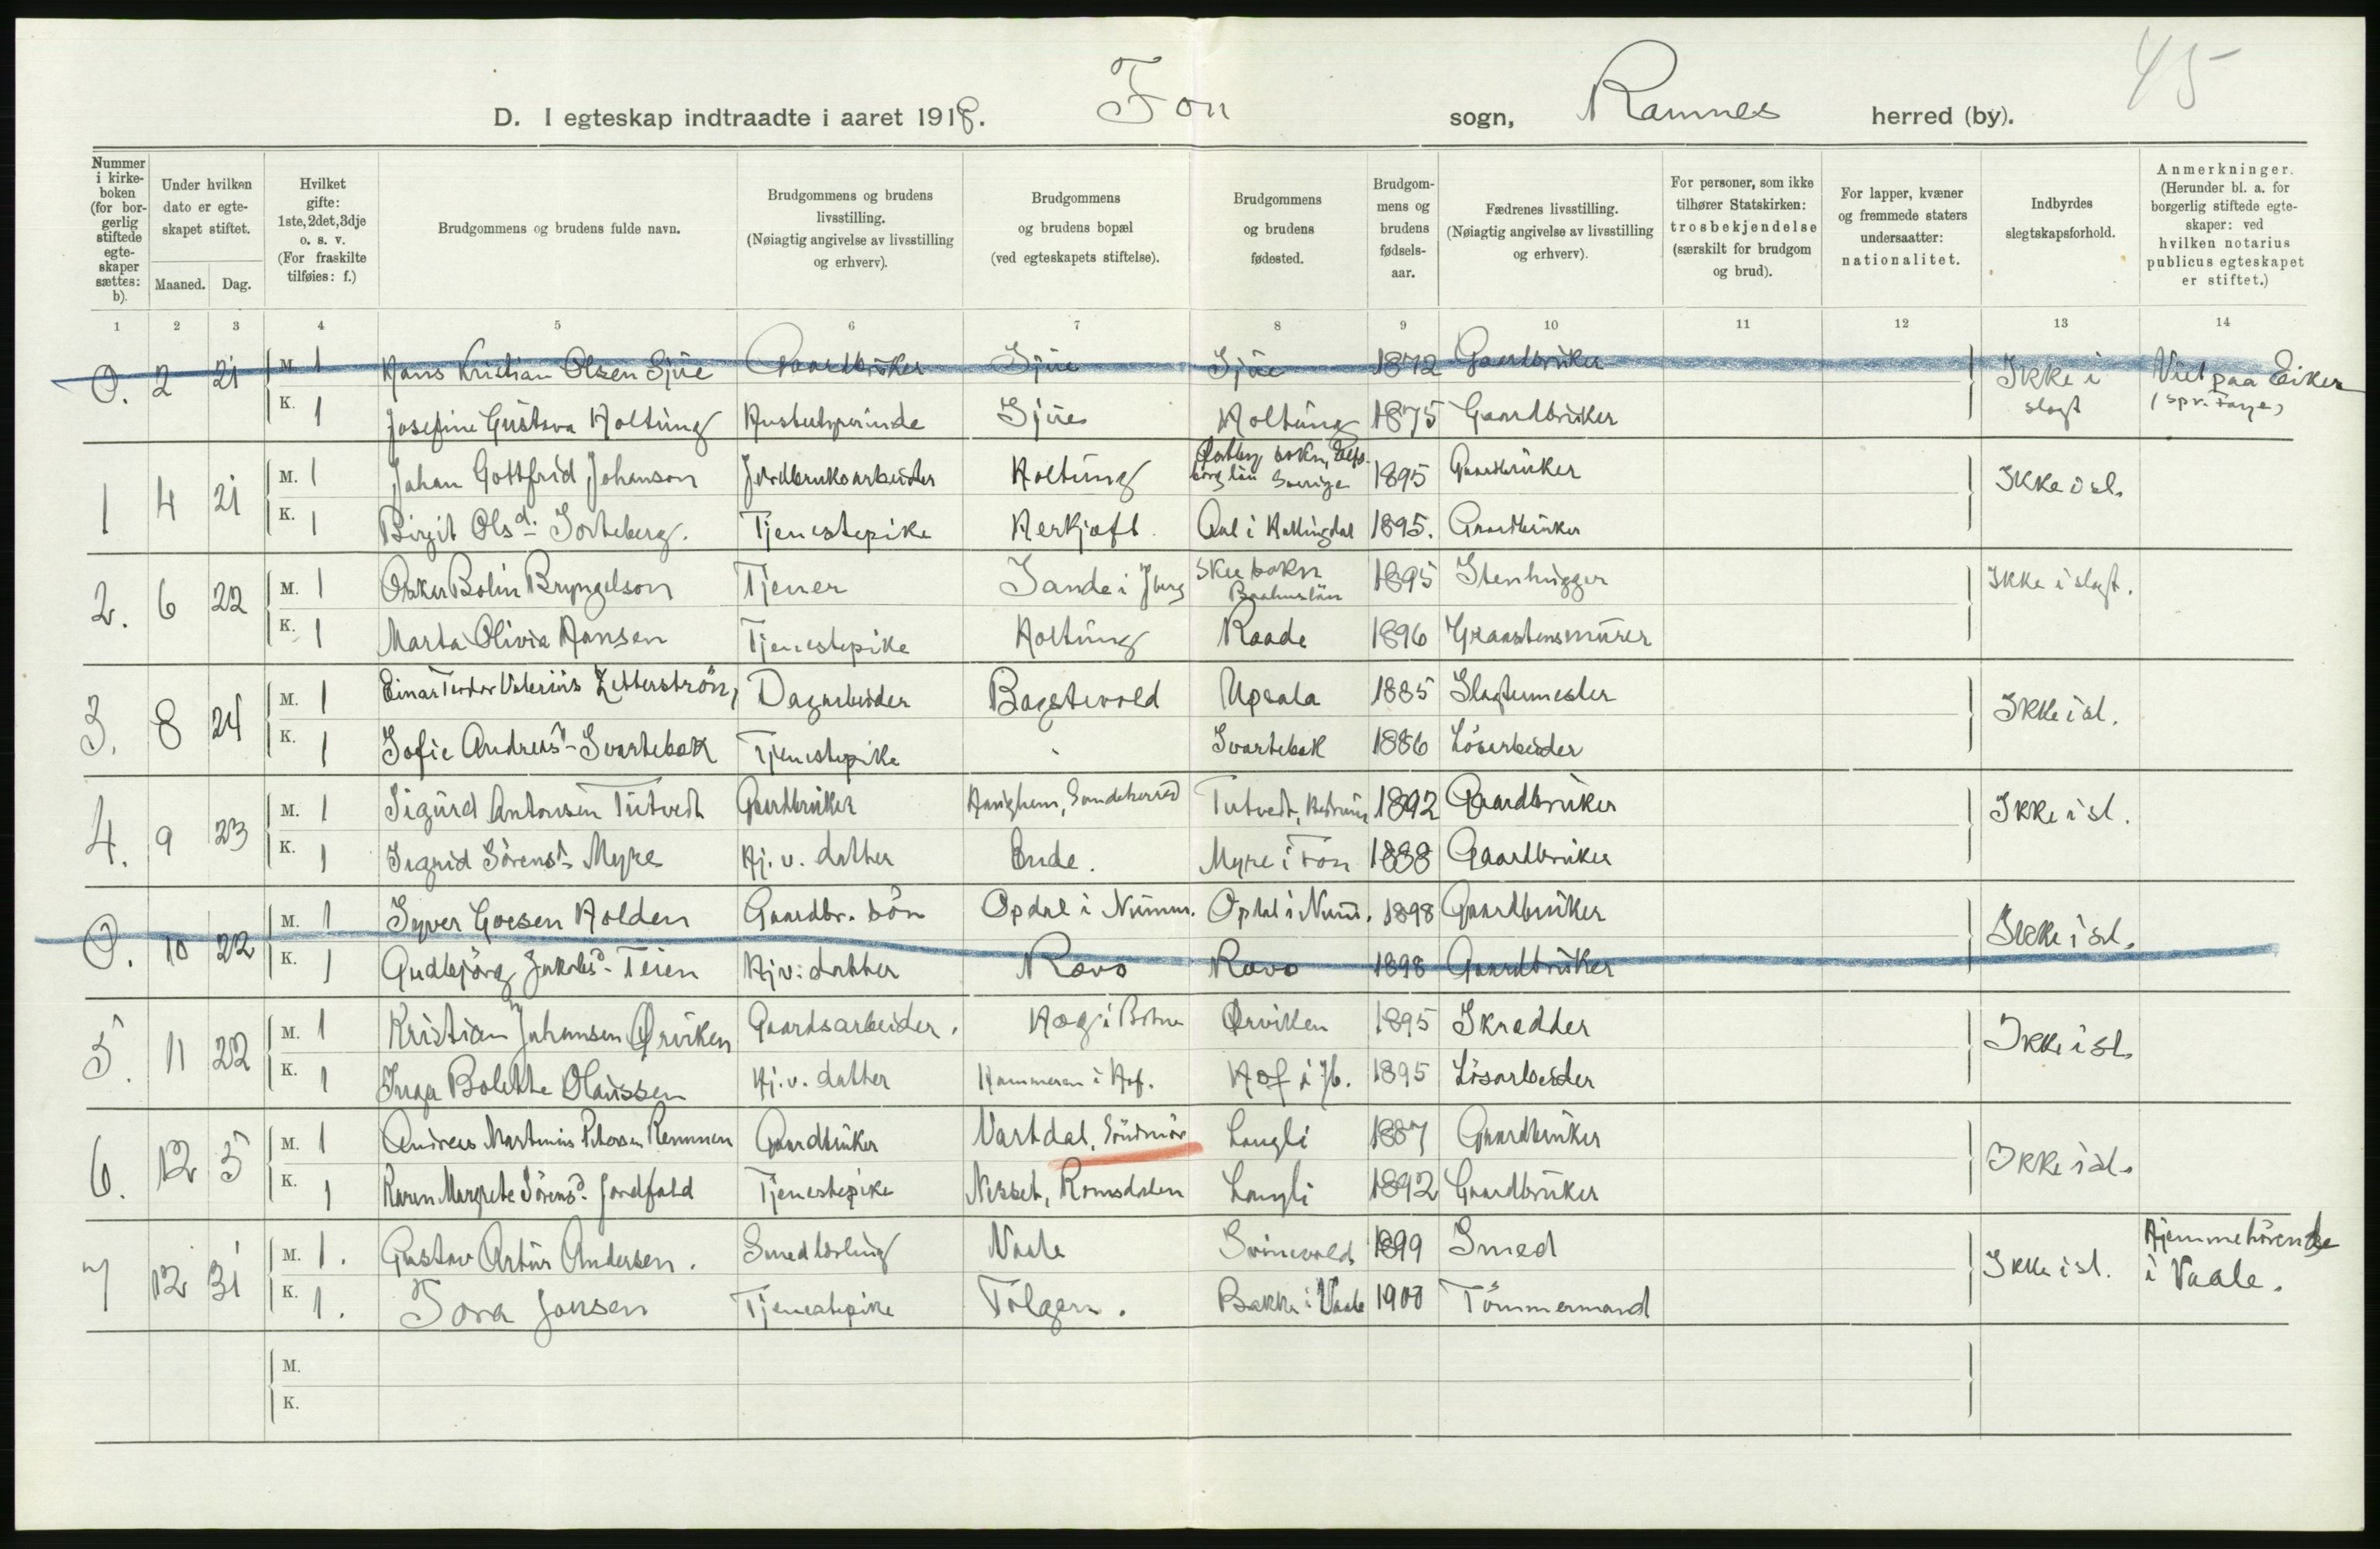 45
D. I egteskap indtraadte i aaret 1918. Fon sogn, Ramnes herred (by).
Nummer i kirkeboken (for borgerlig stiftede egteskaper sættes: b).
Under hvilken dato er egteskapet stiftet.
Maaned. Dag.
Hvilket gifte: 1ste, 2det, 3dje o. s. v. (For fraskilte tilføies: f.)
Brudgommens og brudens fulde navn.
Brudgommens og brudens livsstilling. (Nøiagtig angivelse av livsstilling og erhverv).
Brudgommens og brudens bopæl (ved egteskapets stiftelse).
Brudgommens og brudens fødested.
Brudgommens og brudens fødselsaar.
Fædrenes livsstilling. (Nøiagtig angivelse av livsstilling og erhverv).
For personer, som ikke tilhører Statskirken: trosbekjendelse (særskilt for brudgom og brud).
For lapper, kvæner og fremmede staters undersaatter: nationalitet.
Indbyrdes slegtskapsforhold.
Anmerkninger. (Herunder bl. a. for borgerlig stiftede egteskaper: ved hvilken notarius publicus egteskapet er stiftet.)
1 2 3 4 5 6 7 8 9 10 11 12 13 14
0. 2 21 M. 1 Hans Kristian Olsen Sjue Gaardbruker Sjue Sjue 1872 Gaardbruker Ikke i slegt Viet paa Eiker
K. 1 Josefine Gustava Holtung Sjue Holtung 1875 Gaardbruker
1 4 21 M. 1 Johan Gottfrid Johanson Jordbruksarbeider Holtung sokn, Elfsborg län Sverige 1895 Gaardbruker Ikke i sl.
K. 1 Birgit Olsd. Sorteberg. Tjenestepike Aal i Hallingdal 1895. Gaardbruker
2. 6 22 M. 1 Oskar Bolin Bryngelson Tjener Sande i Jberg Skee sokn Baahuslän 1895 Stenhugger Ikke i slegt.
K. 1 Marta Olivia Hansen Tjenestepike Holtung Raade 1896 Graastensmurer
3. 8 24 M. 1 Einar Teodor Valerius Zetterström, Dagarbeider Bogstevold Upsala 1885 Slagtermester Ikke i sl.
K. 1 Sofie Andreasd. Svartebak Tjenestepike Svartebak 1886 Lösarbeider
4. 9 23 M. 1 Sigurd Antonsen Tutvedt Gaardbruker Haughem, Sandeherred Tutvedt, Hedrum 1892 Gaardbruker Ikke i sl.
K. 1 Sigrid Sörensd. Myre Hj. v. datter Ende. Myre i Fon 1888 Gaardbruker
0. 10 22 M. 1 Syver Goesen Holden Gaardbr. sön Opdal i Numm. Opdal i Num. 1898 Gaardbruker Ikke i sl.
K. 1 Gudbjörg Jakobsd. Teien Hj. v. datter Rovo Rovo 1898 Gaardbruker
5. 11 22 M. 1 Kristian Johansen Ørviken Gaardsarbeider. Ørviken 1895 Skrædder Ikke i sl.
K. 1 Inga Bolette Olaussen Hj. v. datter Kammeren i Hof. Hof i Jb. 1895 Lösarbeider
6. 12 5 M. 1 Andreas Martinius Petersen Remmen Gaardbruker Vartdal, Söndmör Langli 1887 Gaardbruker Ikke i sl.
K. 1 Karen Margrete Sörensd. Jordfald Tjenestepike Nesset, Romsdalen Langli 1892 Gaardbruker
7 12 31 M. 1. Gustav Artur Andersen. Smedlærling Vaale Svinevold 1899 Smed Ikke i sl. Hjemmehörende i Vaale.
K. 1. Tora Jansen Tjenestepike Tolgern. Bakke i Vaale 1900 Tömmermand
M.
K.